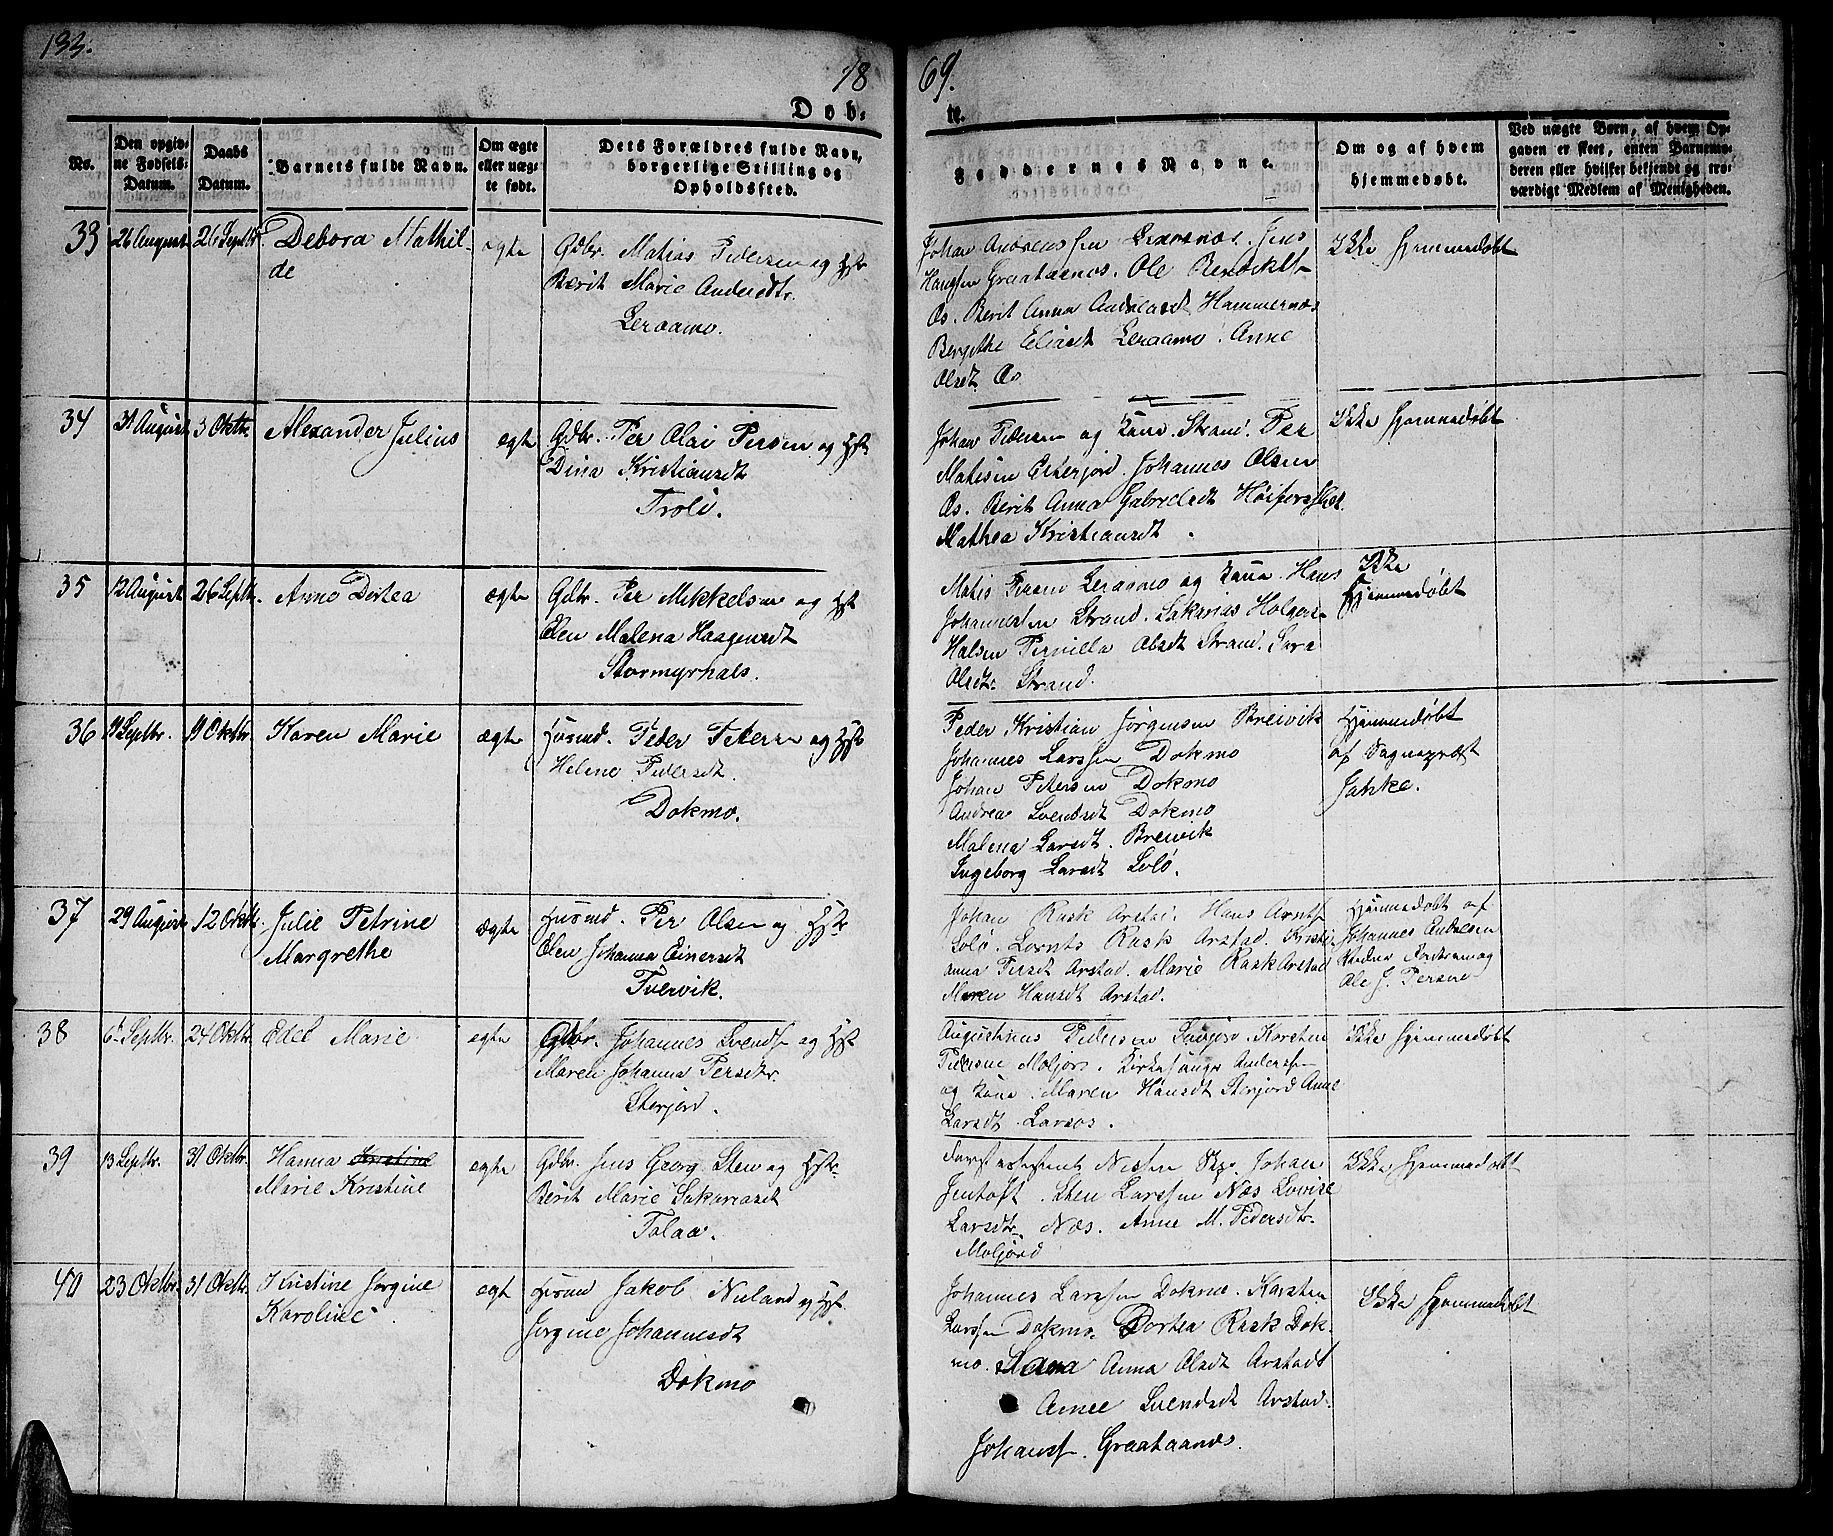 133.
18
69.
Døb-
te.
No.
Den opgiv-
ne Fødsels-
Datum.
Daabs
Datum.
Barnets fulde Navn.
Om ægte
eller uæg-
te født.
Dets Forældres fulde Navn,
borgerlige Stilling og
Opholdssted.
Faddernes Navne.
Om og af hvem
hjemmedøbt.
Ved uægte Børn, af hvem Op-
gaven er skeet, enten Barnemo-
deren eller hvilket bekjendt og tro-
værdigt Medlem af Menigheden.
33
26 August
26 Septbr.
Debora Mathil-
de
egte
Gdbr. Matias Pedersen og Hst
Berit Marie Andersdtr.
Leraamo.
Johan Andreassen Lexesnæs. Jens
Hansen Graataanæs. Ole Bendiktsn
Os. Berit Anna Andreasdt Hammernæs
Bergithe Eliasdt Leraamo. Anne
Olsdt. Os
Ikke hjemmedøbt
34
31 August
3 Oktbr.
Alexander Julius
egte
Gdbr. Per Olai Persen og Hst
Dina Kristiansdt
Trolø.
Johan Pedersen og Kone. Strand. Per
Matisen Osterjord. Johannes Olsen
Os. Berit Anna Gabrielsdt Høiforsslet.
Mathea Kristiansdt.
Ikke hjemmedøbt
35
12 August
26 Septbr.
Anne Dortea
ægte
Gdbr. Per Mikkelsen og Hst
Elen Malena Haagensdt
Stormyrhals.
Matis Persen Leraamo og Kone. Hans
Johannessen Strand. Sakarias Holgers-
Halsen Pernilla Olsdt Strand. Sara
Olsdtr. Strand.
Ikke
hjemmedøbt
36
11 Septbr.
11 Oktbr.
Karen Marie
ægte
Husmd. Peder Petersen og Hst
Helene Pedersdt.
Dokmo.
Peder Kristian Jørgensen Breivik
Johannes Larssen Dokmo
Johan Petersen Dokmo
Andrea Svendsdt Dokmo
Malena Larsdt. Breivik
Ingeborg Larsdt Solø.
Hjemmedøbt
af Sogneprest
Jahke.
37
29 August
12 Oktbr.
Julie Petrine
Margrethe
ægte
Husmd. Per Olsen og Hst
Elen Johanna Einersdt
Tvervik.
Johan Rask Arstad. Hans Arntsn
Solø. Lornts Rask Arstad. Kristi-
anna Persdt Arstad. Marie Rask Arstad
Maren Hansdt Arstad.
Hjemmedøbt af
Johannes Andersen
Ole J. Persen
38
6 Septbr.
24 Oktbr.
Edel Marie
egte
Gdbr. Johannes Svendsn og Hst
Maren Johanna Persdtr.
Sterjord.
Augustinus Pedersen Karsten
Pedersen Moljord. Kirkesanger Anderssen
og Kone. Maren Hansdt Sterjord Anne
Larsdt Larsos.
Ikke hjemmedøbt
39
13 Septbr.
31 Oktbr.
Hanna Kristine
Marie Kristine
egte
Gdbr. Jens Georg Sten og Hst
Berit Marie Sakariasdt
Tolaa.
Johan
Jentoft. Sten Larssen Næs Lovise
Larsdtr Næs. Anne M. Pedersdtr.
Moljord
Ikke hjemmedøbt
40
23 Oktbr.
31 Oktbr.
Kristine Jørgine
Karoline
egte
Husmd Jakob Nieland og Hst.
Jørgine Johannesdt
Dokmo
Johannes Larssen Dokmo. Karsten
Larssen Dokmo. Dortea Rask Dok-
mo. Anna Olsdt Arstad
Anne Svendsdt Arstad.
Johanssn Graataanes.
Ikke hjemmedøbt